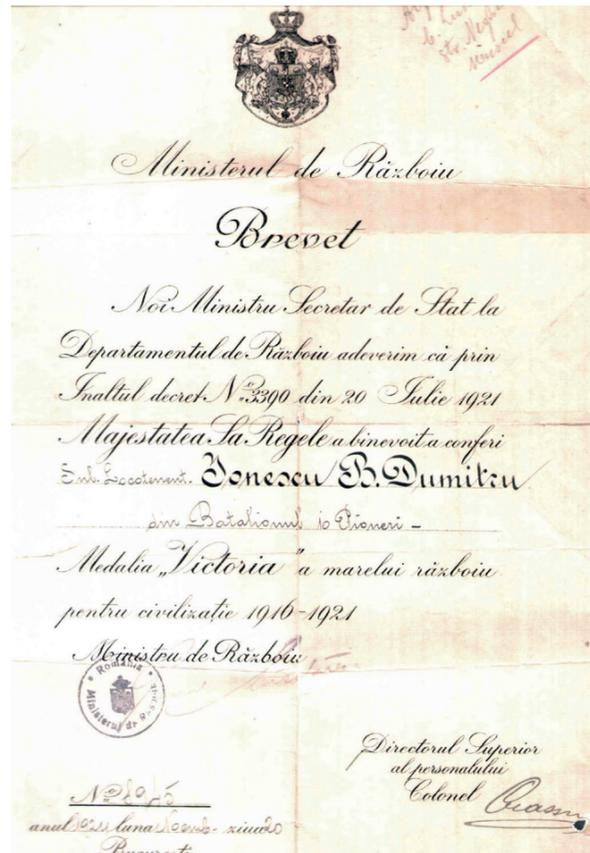 Ministerul de Războiu
Brevet
Noi Ministru Secretar de Stat la
Departamentul de Războiu adeverim că prin
Inaltul decret No 3390 din 20 Iulie 1921
Majestatea Sa Regele a binevoit a conferi
Sub. Locotenent. Ionescu B. Dumitru
din Batalionul 10 Pioneri -
Medalia „Victoria" a marelui războiu
pentru civilizaţie 1916-1921
Ministru de Războiu
România
Ministerul de Resbel
Directorul Superior
al personalului
Colonel
No
anul luna ziua 20
Bucureşti